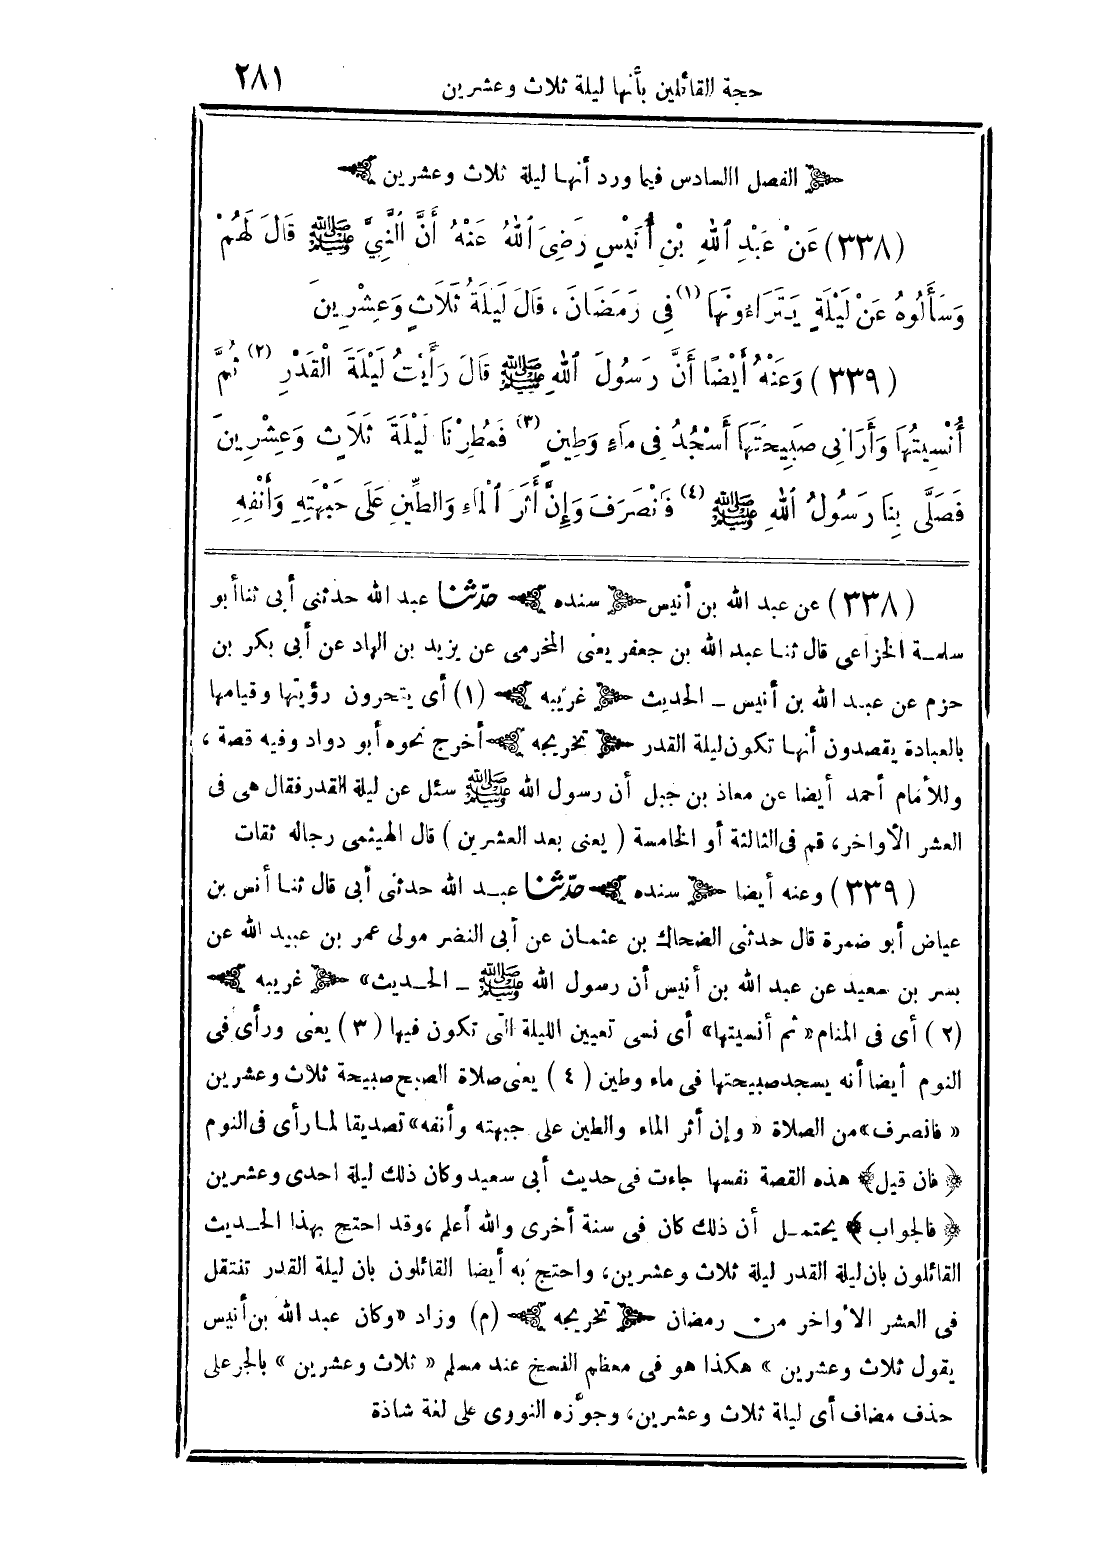 حجة القائلين بأنها ليلة ثلاث وعشرين ٢٨١
﴿ الفصل السادس فيما ورد أنها ليلة ثلاث وعشرين ﴾
(٣٣٨) عَنْ عَبْدِ اللهِ بْنِ أُنَيْسٍ رَضِىَ اللهُ عَنْهُ أَنَّ النَّبِيَّ ﷺ قَالَ لَهُمْ
وَسَأَلُوهُ عَنْ لَيْلَةٍ يَتَرَاءَوْنَهَا (١) فِى رَمَضَانَ، قَالَ لَيْلَةُ ثَلَاثٍ وَعِشْرِينَ
(٣٣٩) وَعَنْهُ أَيْضًا أَنَّ رَسُولَ اللهِ ﷺ قَالَ رَأَيْتُ لَيْلَةَ الْقَدْرِ (٢) ثُمَّ
أُنْسِيتُهَا وَأَرَانِى صَبِيحَتَهَا أَسْجُدُ فِى مَاءٍ وَطِينٍ (٣) فَمُطِرْنَا لَيْلَةَ ثَلَاثٍ وَعِشْرِينَ
فَصَلَّى بِنَا رَسُولُ اللهِ ﷺ (٤) فَانْصَرَفَ وَإِنَّ أَثَرَ الْمَاءِ وَالطِّينِ عَلَى جَبْهَتِهِ وَأَنْفِهِ
(٣٣٨) عن عبد الله بن أنيس ﴿ سنده ﴾ حدّثنا عبد الله حدثنى أبى ثنا أبو
سلمة الخزاعى قال ثنا عبد الله بن جعفر يعنى المخرمى عن يزيد بن الهاد عن أبى بكر بن
حزم عن عبد الله بن أنيس ــ الحديث ﴿ غريبه ﴾ (١) أى يتحرون رؤيتها وقيامها
بالعبادة يقصدون أنها تكون ليلة القدر ﴿ تخريجه ﴾ أخرج نحوه أبو دواد وفيه قصة،
وللأمام أحمد أيضا عن معاذ بن جبل أن رسول الله ﷺ سئل عن ليلة القدر فقال هى فى
العشر الأواخر، قم فى الثالثة أو الخامسة ( يعنى بعد العشرين ) قال الهيثمى رجاله ثقات
(٣٣٩) وعنه أيضا ﴿ سنده ﴾ حدّثنا عبد الله حدثنى أبى قال ثنا أنس بن
عياض أبو ضمرة قال حدثنى الضحاك بن عثمان عن أبى النضر مولى عمر بن عبيد الله عن
بسر بن سعيد عن عبد الله بن أنيس أن رسول الله ﷺ ــ الحديث» ﴿ غريبه ﴾
(٢) أى فى المنام « ثم أنسيتها» أى نسى تعيين الليلة التى تكون فيها (٣) يعنى ورأى فى
النوم أيضا أنه يسجد صبيحتها فى ماء وطين (٤) يعنى صلاة الصبح صبيحة ثلاث وعشرين
« فانصرف» من الصلاة « وإن أثر الماء والطين على جبهته وأنفه» تصديقا لما رأى فى النوم
﴿ فان قيل ﴾ هذه القصة نفسها جاءت فى حديث أبى سعيد وكان ذلك ليلة احدى وعشرين
﴿ فالجواب ﴾ يحتمل أن ذلك كان فى سنة أخرى والله أعلم، وقد احتج بهذا الحديث
القائلون بان ليلة القدر ليلة ثلاث وعشرين، واحتج به أيضا القائلون بان ليلة القدر تنتقل
فى العشر الأواخر من رمضان ﴿ تخريجه ﴾ (م) وزاد «وكان عبد الله بن أنيس
يقول ثلاث وعشرين » هكذا هو فى معظم النسخ عند مسلم « ثلاث وعشرين » بالجر على
حذف مضاف أى ليلة ثلاث وعشرين، وجوّزه النووى على لغة شاذة